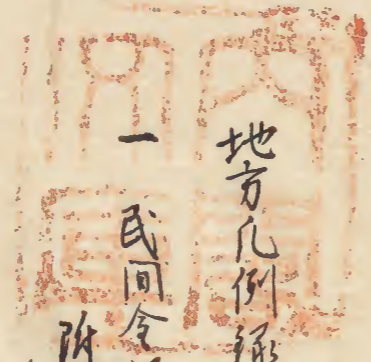 地方凡例録
一 民間令
附